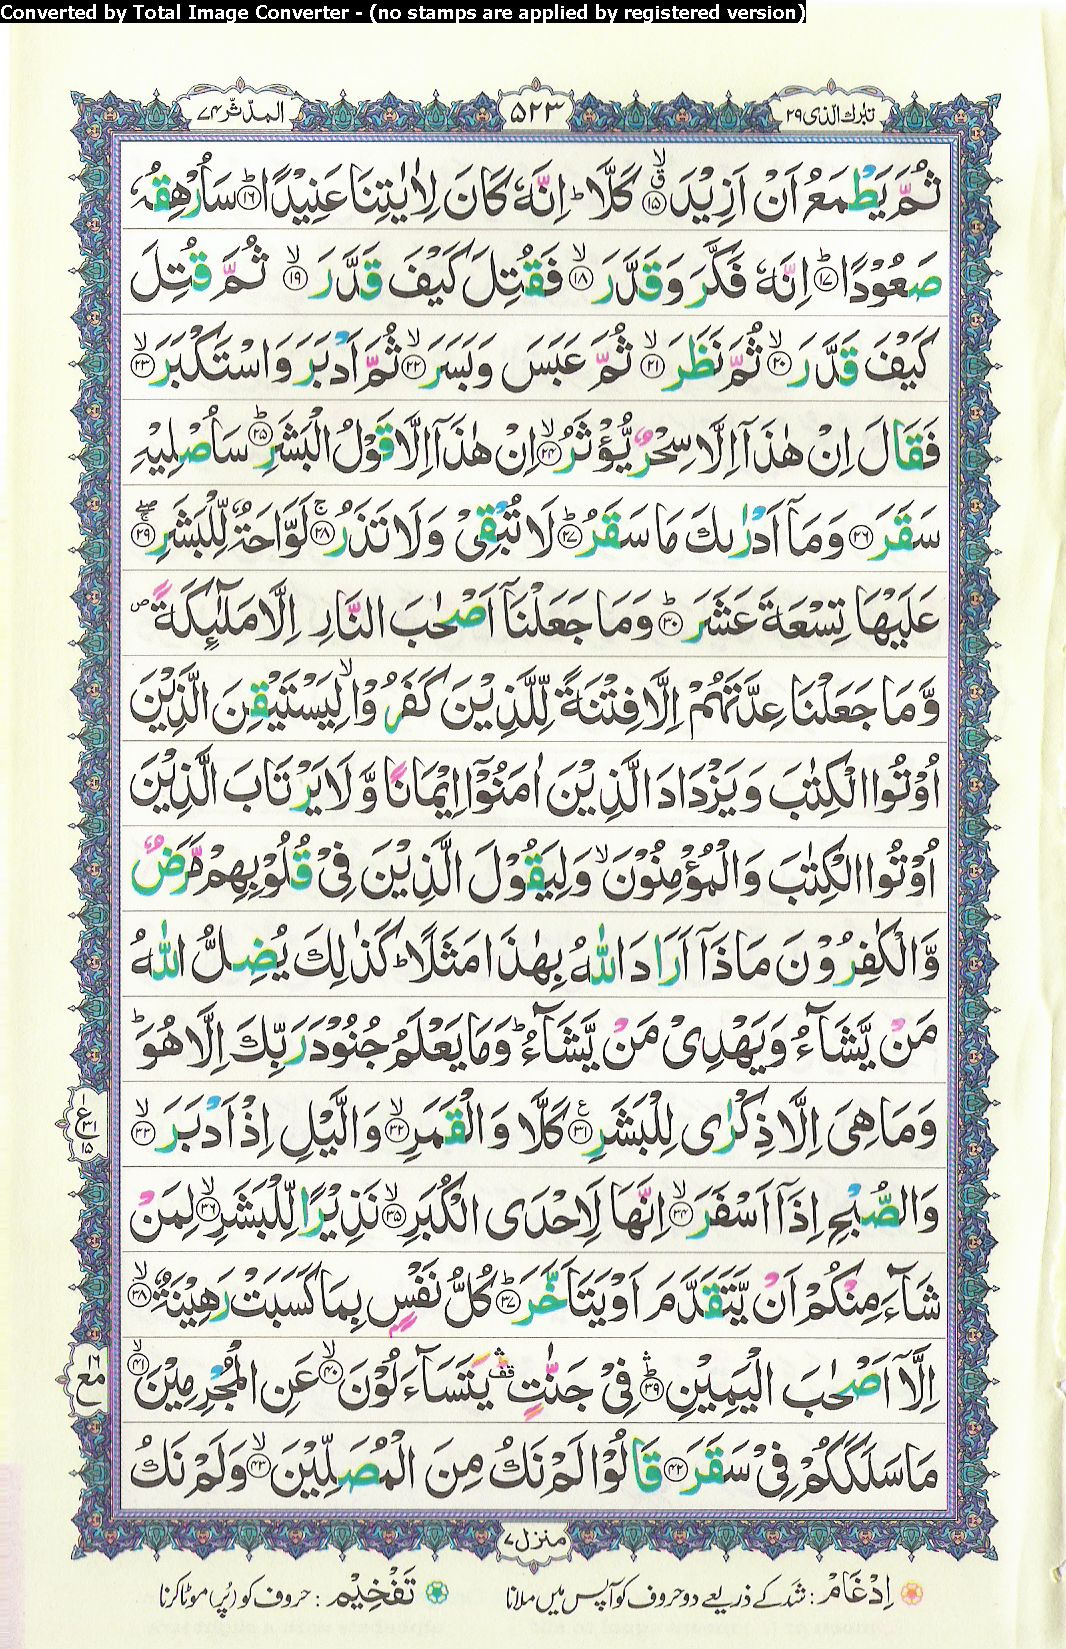 Converted by Total Image Converter - (no stamps are applied by registered version)
تبٰرك الّذی ۲۹
۵۲۳
المدّثّر ۷۴
ثُمَّ يَطْمَعُ اَنْ اَزِيْدَ ۙ۱۵ كَلَّا ؕ اِنَّهٗ كَانَ لِاٰيٰتِنَا عَنِيْدًا ؕ۱۶ سَاُرْهِقُهٗ
صَعُوْدًا ؕ۱۷ اِنَّهٗ فَكَّرَ وَقَدَّرَ ۙ۱۸ فَقُتِلَ كَيْفَ قَدَّرَ ۙ۱۹ ثُمَّ قُتِلَ
كَيْفَ قَدَّرَ ۙ۲۰ ثُمَّ نَظَرَ ۙ۲۱ ثُمَّ عَبَسَ وَبَسَرَ ۙ۲۲ ثُمَّ اَدْبَرَ وَاسْتَكْبَرَ ۙ۲۳
فَقَالَ اِنْ هٰذَآ اِلَّا سِحْرٌ يُّؤْثَرُ ۙ۲۴ اِنْ هٰذَآ اِلَّا قَوْلُ الْبَشَرِ ؕ۲۵ سَاُصْلِيْهِ
سَقَرَ ۲۶ وَمَآ اَدْرٰىكَ مَا سَقَرُ ؕ۲۷ لَا تُبْقِىْ وَلَا تَذَرُ ۚ۲۸ لَوَّاحَةٌ لِّلْبَشَرِ ۲۹
عَلَيْهَا تِسْعَةَ عَشَرَ ؕ۳۰ وَمَا جَعَلْنَآ اَصْحٰبَ النَّارِ اِلَّا مَلٰٓئِكَةً ص
وَّمَا جَعَلْنَا عِدَّتَهُمْ اِلَّا فِتْنَةً لِّلَّذِيْنَ كَفَرُوْا ۙ لِيَسْتَيْقِنَ الَّذِيْنَ
اُوْتُوا الْكِتٰبَ وَيَزْدَادَ الَّذِيْنَ اٰمَنُوْٓا اِيْمَانًا وَّلَا يَرْتَابَ الَّذِيْنَ
اُوْتُوا الْكِتٰبَ وَالْمُؤْمِنُوْنَ ۙ وَلِيَقُوْلَ الَّذِيْنَ فِىْ قُلُوْبِهِمْ مَّرَضٌ
وَّالْكٰفِرُوْنَ مَاذَآ اَرَادَ اللّٰهُ بِهٰذَا مَثَلًا ؕ كَذٰلِكَ يُضِلُّ اللّٰهُ
مَنْ يَّشَآءُ وَيَهْدِىْ مَنْ يَّشَآءُ ؕ وَمَا يَعْلَمُ جُنُوْدَ رَبِّكَ اِلَّا هُوَ ؕ
وَمَا هِىَ اِلَّا ذِكْرٰى لِلْبَشَرِ ۳۱ كَلَّا وَالْقَمَرِ ۙ۳۲ وَالَّيْلِ اِذْ اَدْبَرَ ۙ۳۳
ع ۳۱ ۱۵
وَالصُّبْحِ اِذَآ اَسْفَرَ ۙ۳۴ اِنَّهَا لَاِحْدَى الْكُبَرِ ۙ۳۵ نَذِيْرًا لِّلْبَشَرِ ۙ۳۶ لِمَنْ
شَآءَ مِنْكُمْ اَنْ يَّتَقَدَّمَ اَوْ يَتَاَخَّرَ ؕ۳۷ كُلُّ نَفْسٍۭ بِمَا كَسَبَتْ رَهِيْنَةٌ ۙ۳۸
اِلَّآ اَصْحٰبَ الْيَمِيْنِ ؕ۳۹ فِىْ جَنّٰتٍ يَتَسَآءَلُوْنَ ۙ۴۰ عَنِ الْمُجْرِمِيْنَ ۙ۴۱
۱۶ مع
مَا سَلَكَكُمْ فِىْ سَقَرَ ۴۲ قَالُوْا لَمْ نَكُ مِنَ الْمُصَلِّيْنَ ۙ۴۳ وَلَمْ نَكُ
منزل ۷
اِدْغَامْ: شد کے ذریعے دو حروف کو آپس میں ملانا
تَفْخِيْم: حروف کو (پُر) موٹا کرنا